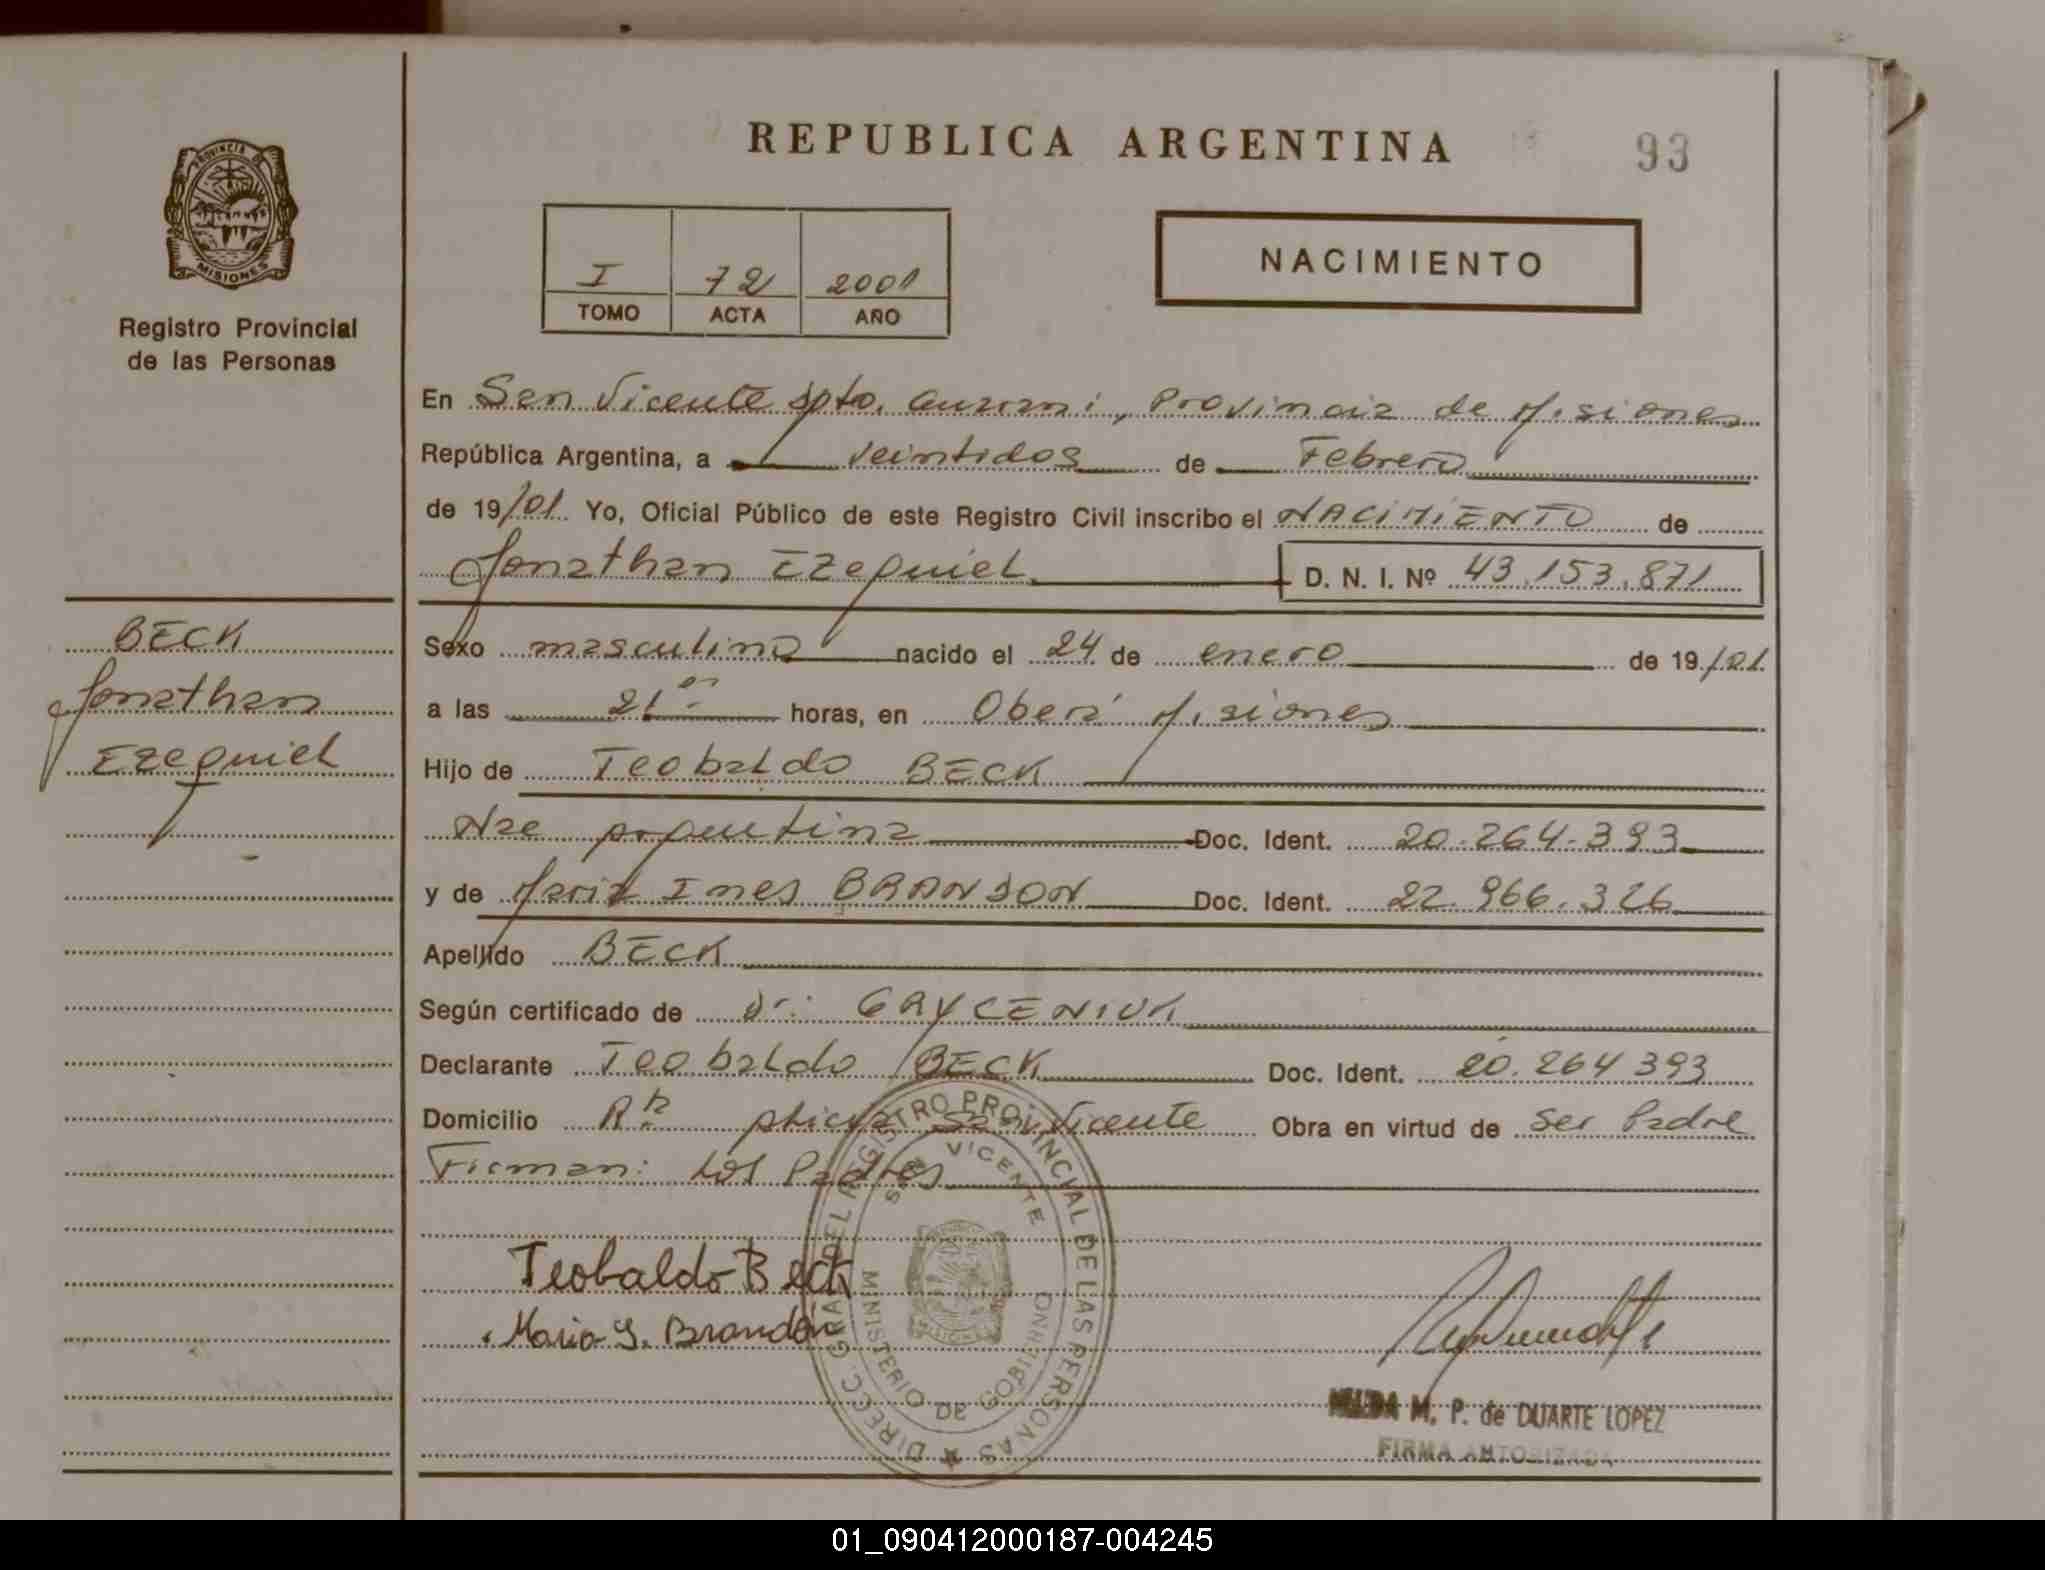 REPUBLICA ARGENTINA
93
PROVINCIA DE
MISIONES
Registro Provincial
de las Personas
I 72 2001
TOMO ACTA AÑO
NACIMIENTO
En San Vicente Dpto. Guarani, Provincia de Misiones
República Argentina, a veintidos de Febrero
de 19/01 Yo, Oficial Público de este Registro Civil inscribo el NACIMIENTO de
Jonathan Ezequiel D. N. I. Nº 43.153.871
BECK
Jonathan
Ezequiel
Sexo masculino nacido el 24 de enero de 19/01
a las 21 horas, en Oberá Misiones
Hijo de Teobaldo BECK
Nac argentina Doc. Ident. 20.264.393
y de Maria Ines BRANDON Doc. Ident. 22.966.326
Apellido BECK
Según certificado de Dr. GRYCENIUK
Declarante Teobaldo BECK Doc. Ident. 20.264393
Domicilio San Vicente Obra en virtud de ser Padre
Firman: Los Padres
Teobaldo Beck
Maria Y. Brandon
DIRECC GRAL DEL REGISTRO PROVINCIAL DE LAS PERSONAS
SAN VICENTE
MINISTERIO DE GOBIERNO
M. P. de DUARTE LOPEZ
FIRMA AUTORIZADA
01_090412000187-004245